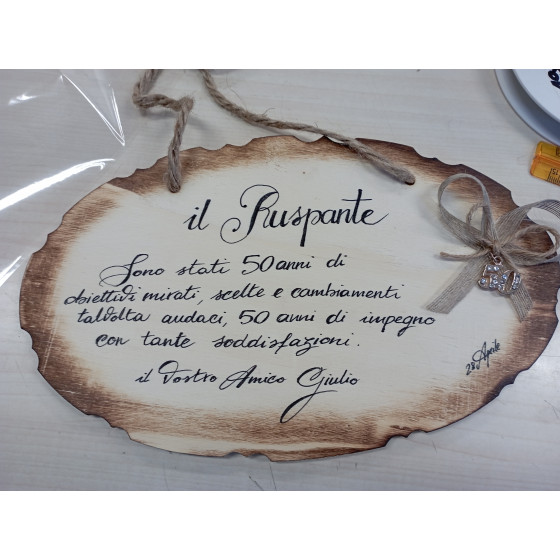 il Ruspante
Sono stati 50 anni di
obiettivi mirati, scelte e cambiamenti
talvolta audaci, 50 anni di impegno
con tante soddisfazioni.
il Vostro Amico Giulio
28 Aprile